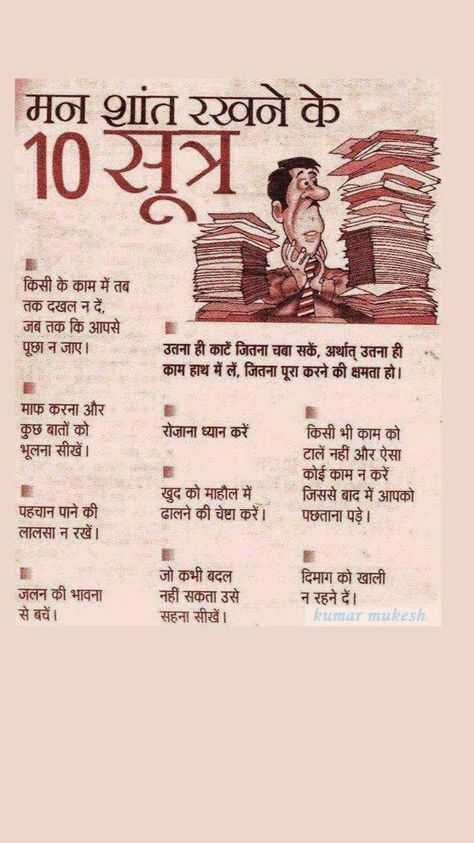 मन शांत रखने के
10 सूत्र
किसी के काम में तब
तक दखल न दें,
जब तक कि आपसे
पूछा न जाए।
माफ करना और
कुछ बातों को
भूलना सीखें।
पहचान पाने की
लालसा न रखें।
जलन की भावना
से बचें।
उतना ही काटें जितना चबा सकें, अर्थात् उतना ही
काम हाथ में लें, जितना पूरा करने की क्षमता हो।
रोजाना ध्यान करें
खुद को माहौल में
ढालने की चेष्टा करें।
जो कभी बदल
नहीं सकता उसे
सहना सीखें।
किसी भी काम को
टालें नहीं और ऐसा
कोई काम न करें
जिससे बाद में आपको
पछताना पड़े।
दिमाग को खाली
न रहने दें।
kumar mukesh